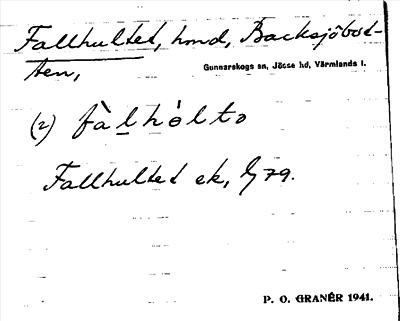 Fallhultet, hmd, Backsjöbot-
ten,
Gunnarskogs sn, Jösse hd, Värmlands l.
(2) fàlhólto
Fallhultet ek, 79.
P. O. GRANÉR 1941.